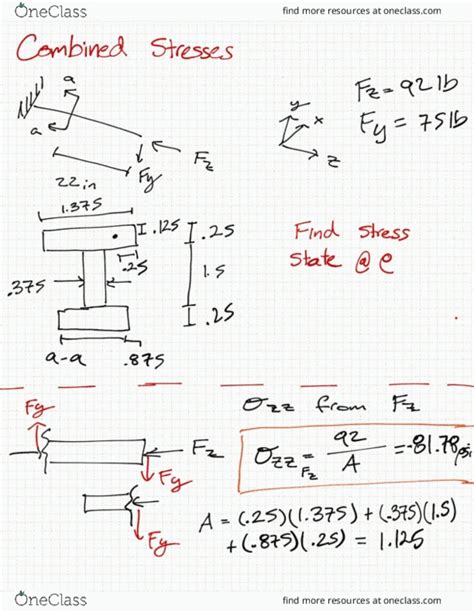 OneClass
find more resources at oneclass.com
Combined Stresses
a
a
Fz = 92 lb
Fy = 75 lb
y
x
z
Fz
Fy
22 in
1.375
.125
.25
.25
1.5
.375
.25
a-a
.875
Find stress
state @
σzz from Fz
Fy
Fz
Fy
Fy
σzz = 92/A = -81.78 psi
Fz
A = (.25)(1.375) + (.375)(1.5)
+ (.875)(.25) = 1.125
OneClass
find more resources at oneclass.com